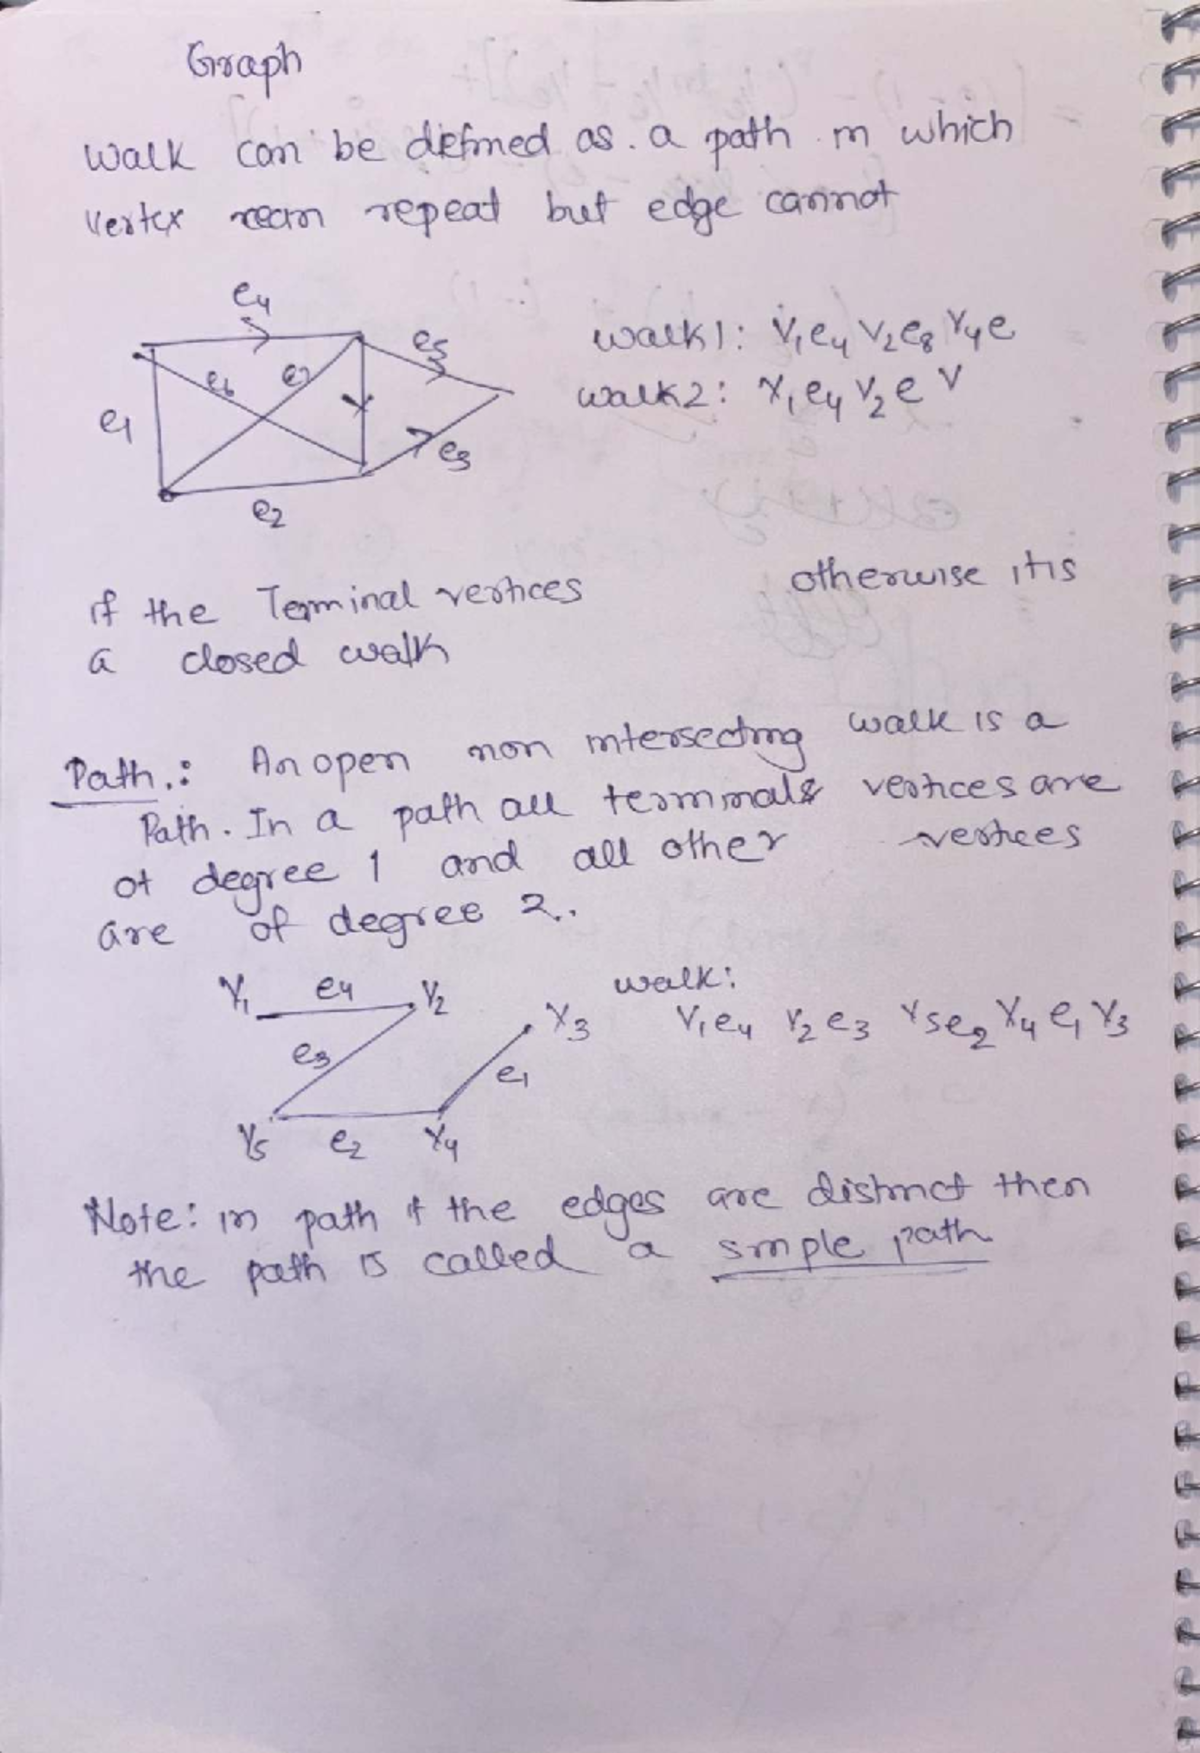 Graph
walk can be defined as. a path in which
vertex can repeat but edge cannot
e4
e5
walk1: V1e4 V2e8 V4e
e6 e7
walk2: V1e4 V2 e V
e1
e3
e2
if the Terminal vertices otherwise it is
a closed walk
Path.: An open non intersecting walk is a
Path. In a path all terminals vertices are
of degree 1 and all other vertices
are of degree 2..
V1 e4 V2 walk:
V3 V1e4 V2e3 V5e2 V4 e1 V3
e3
e1
V5 e2 V4
Note: in path if the edges are distinct then
the path is called a simple path